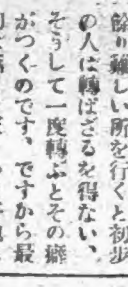 餘り難しい所を行くと初歩
の人は轉ばざるを得ない、
そうして一度轉ぶとその癖
がつくのです、ですから最